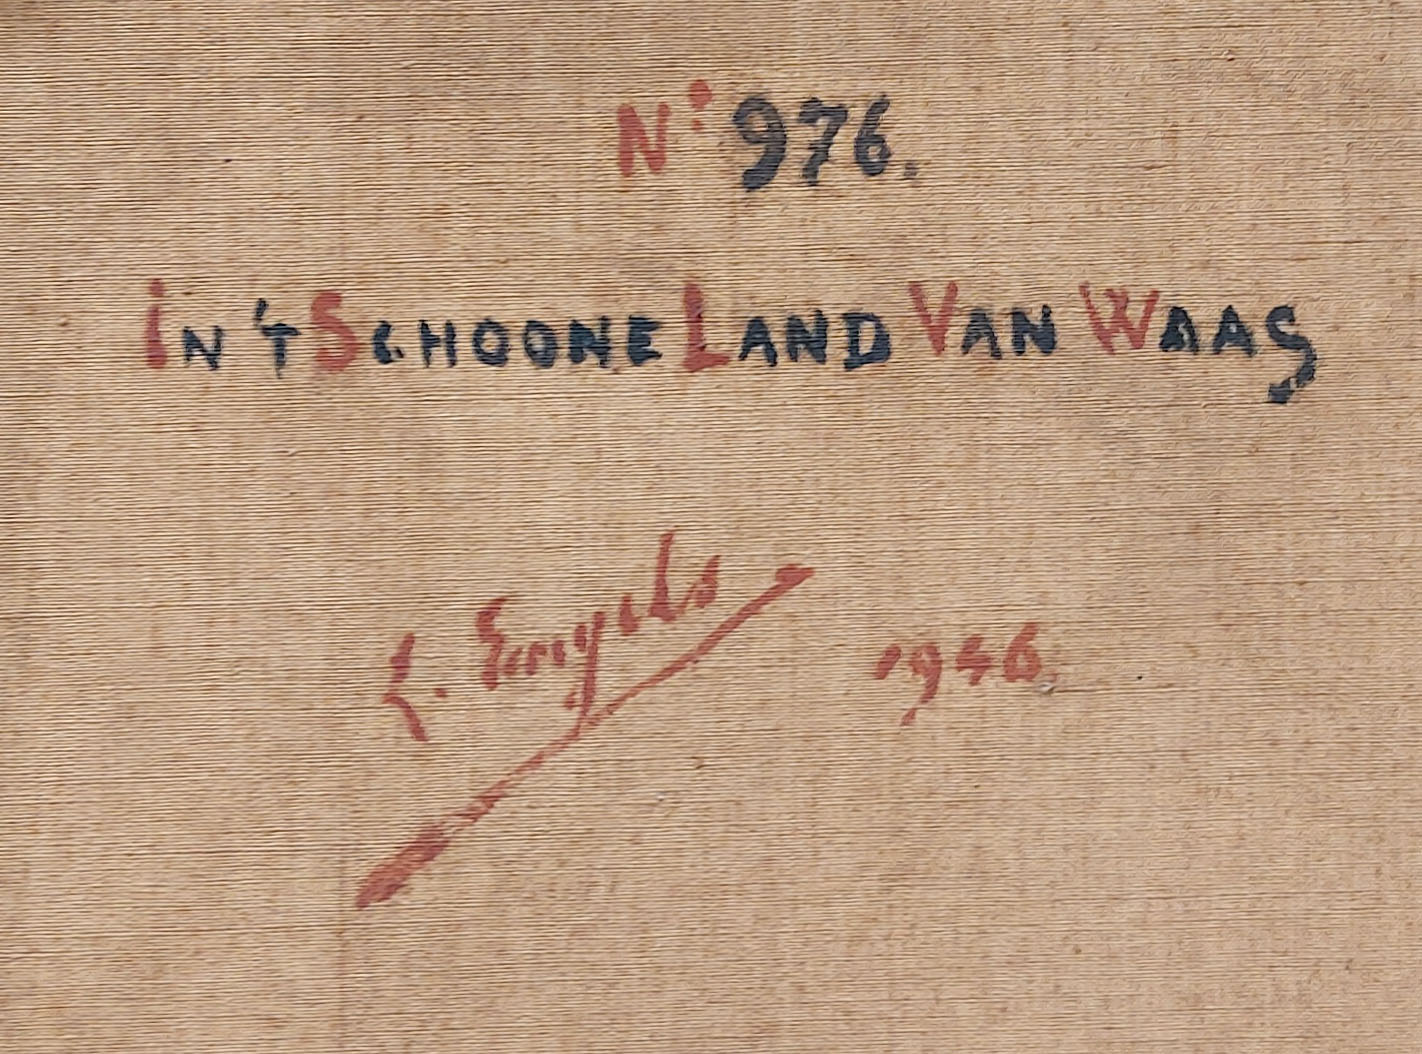 N° 976.
IN 'T SCHOONE LAND VAN WAAS
L. Engels 1946.